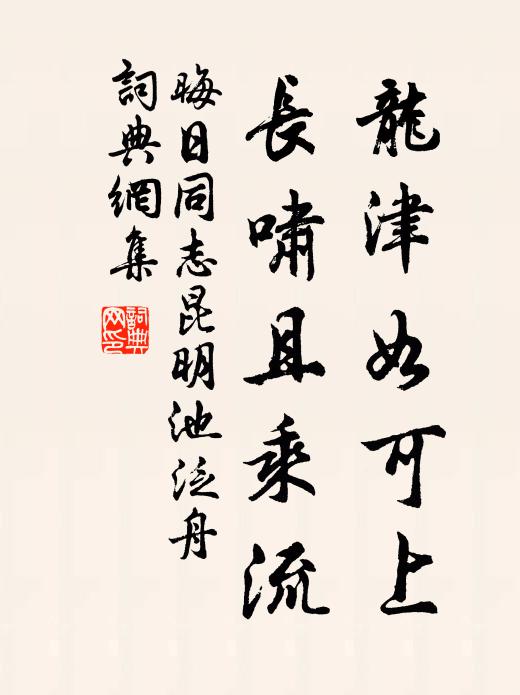 龍津如可上
長嘯且乘流
晦日同志昆明池泛舟
詞典網集
詞典
网印